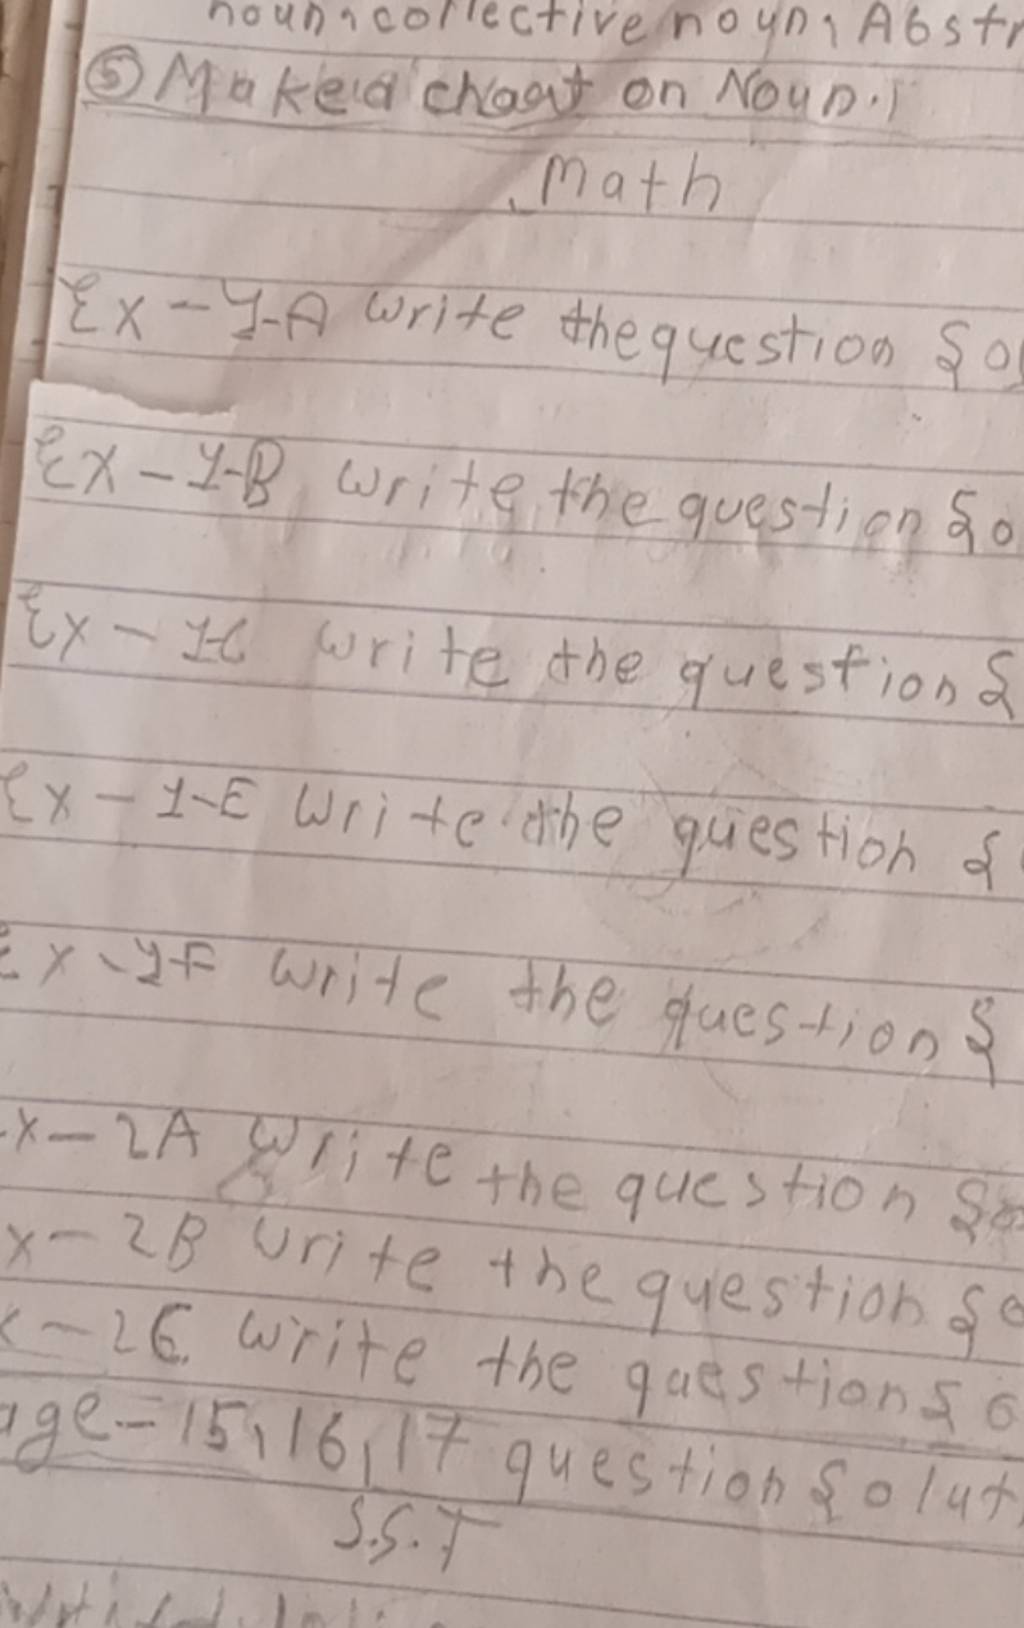 noun, collective noyn, Abstr
⑤ Make a chart on Noun.
Math
Ex-1-A write the question So
Ex-1-B write the question So
Ex-1-C write the question S
Ex-1-E write the question S
Ex-1F write the question S
x-2A write the question So
x-2B write the question So
x-2C write the question So
age-15,16,17 question Solut
S.S.T